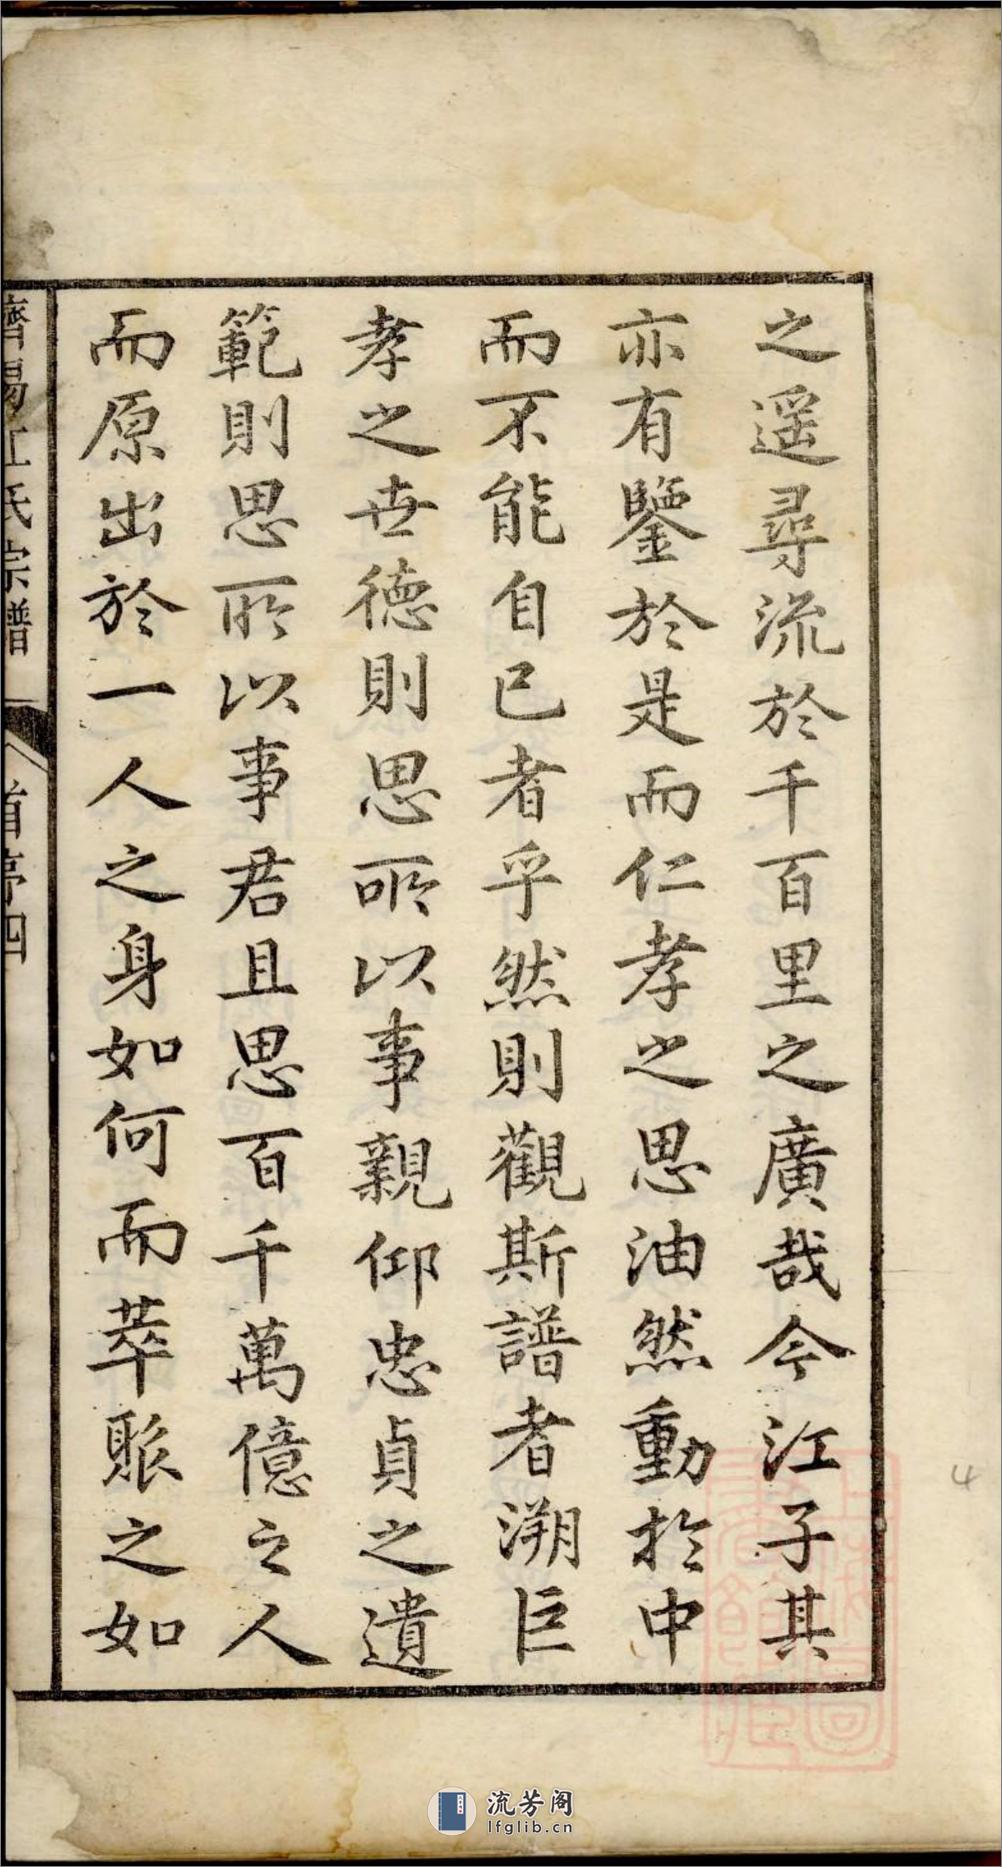 之遥尋流於千百里之廣哉今江子其
亦有鑒於是而仁孝之思油然動於中
而不能自已者乎然則觀斯譜者溯巨
孝之世德則思所以事親仰忠貞之遺
範則思所以事君且思百千萬億之人
而原出於一人之身如何而萃賑之如
濟陽江氏宗譜 首序四
4
流芳阁
lfglib.cn